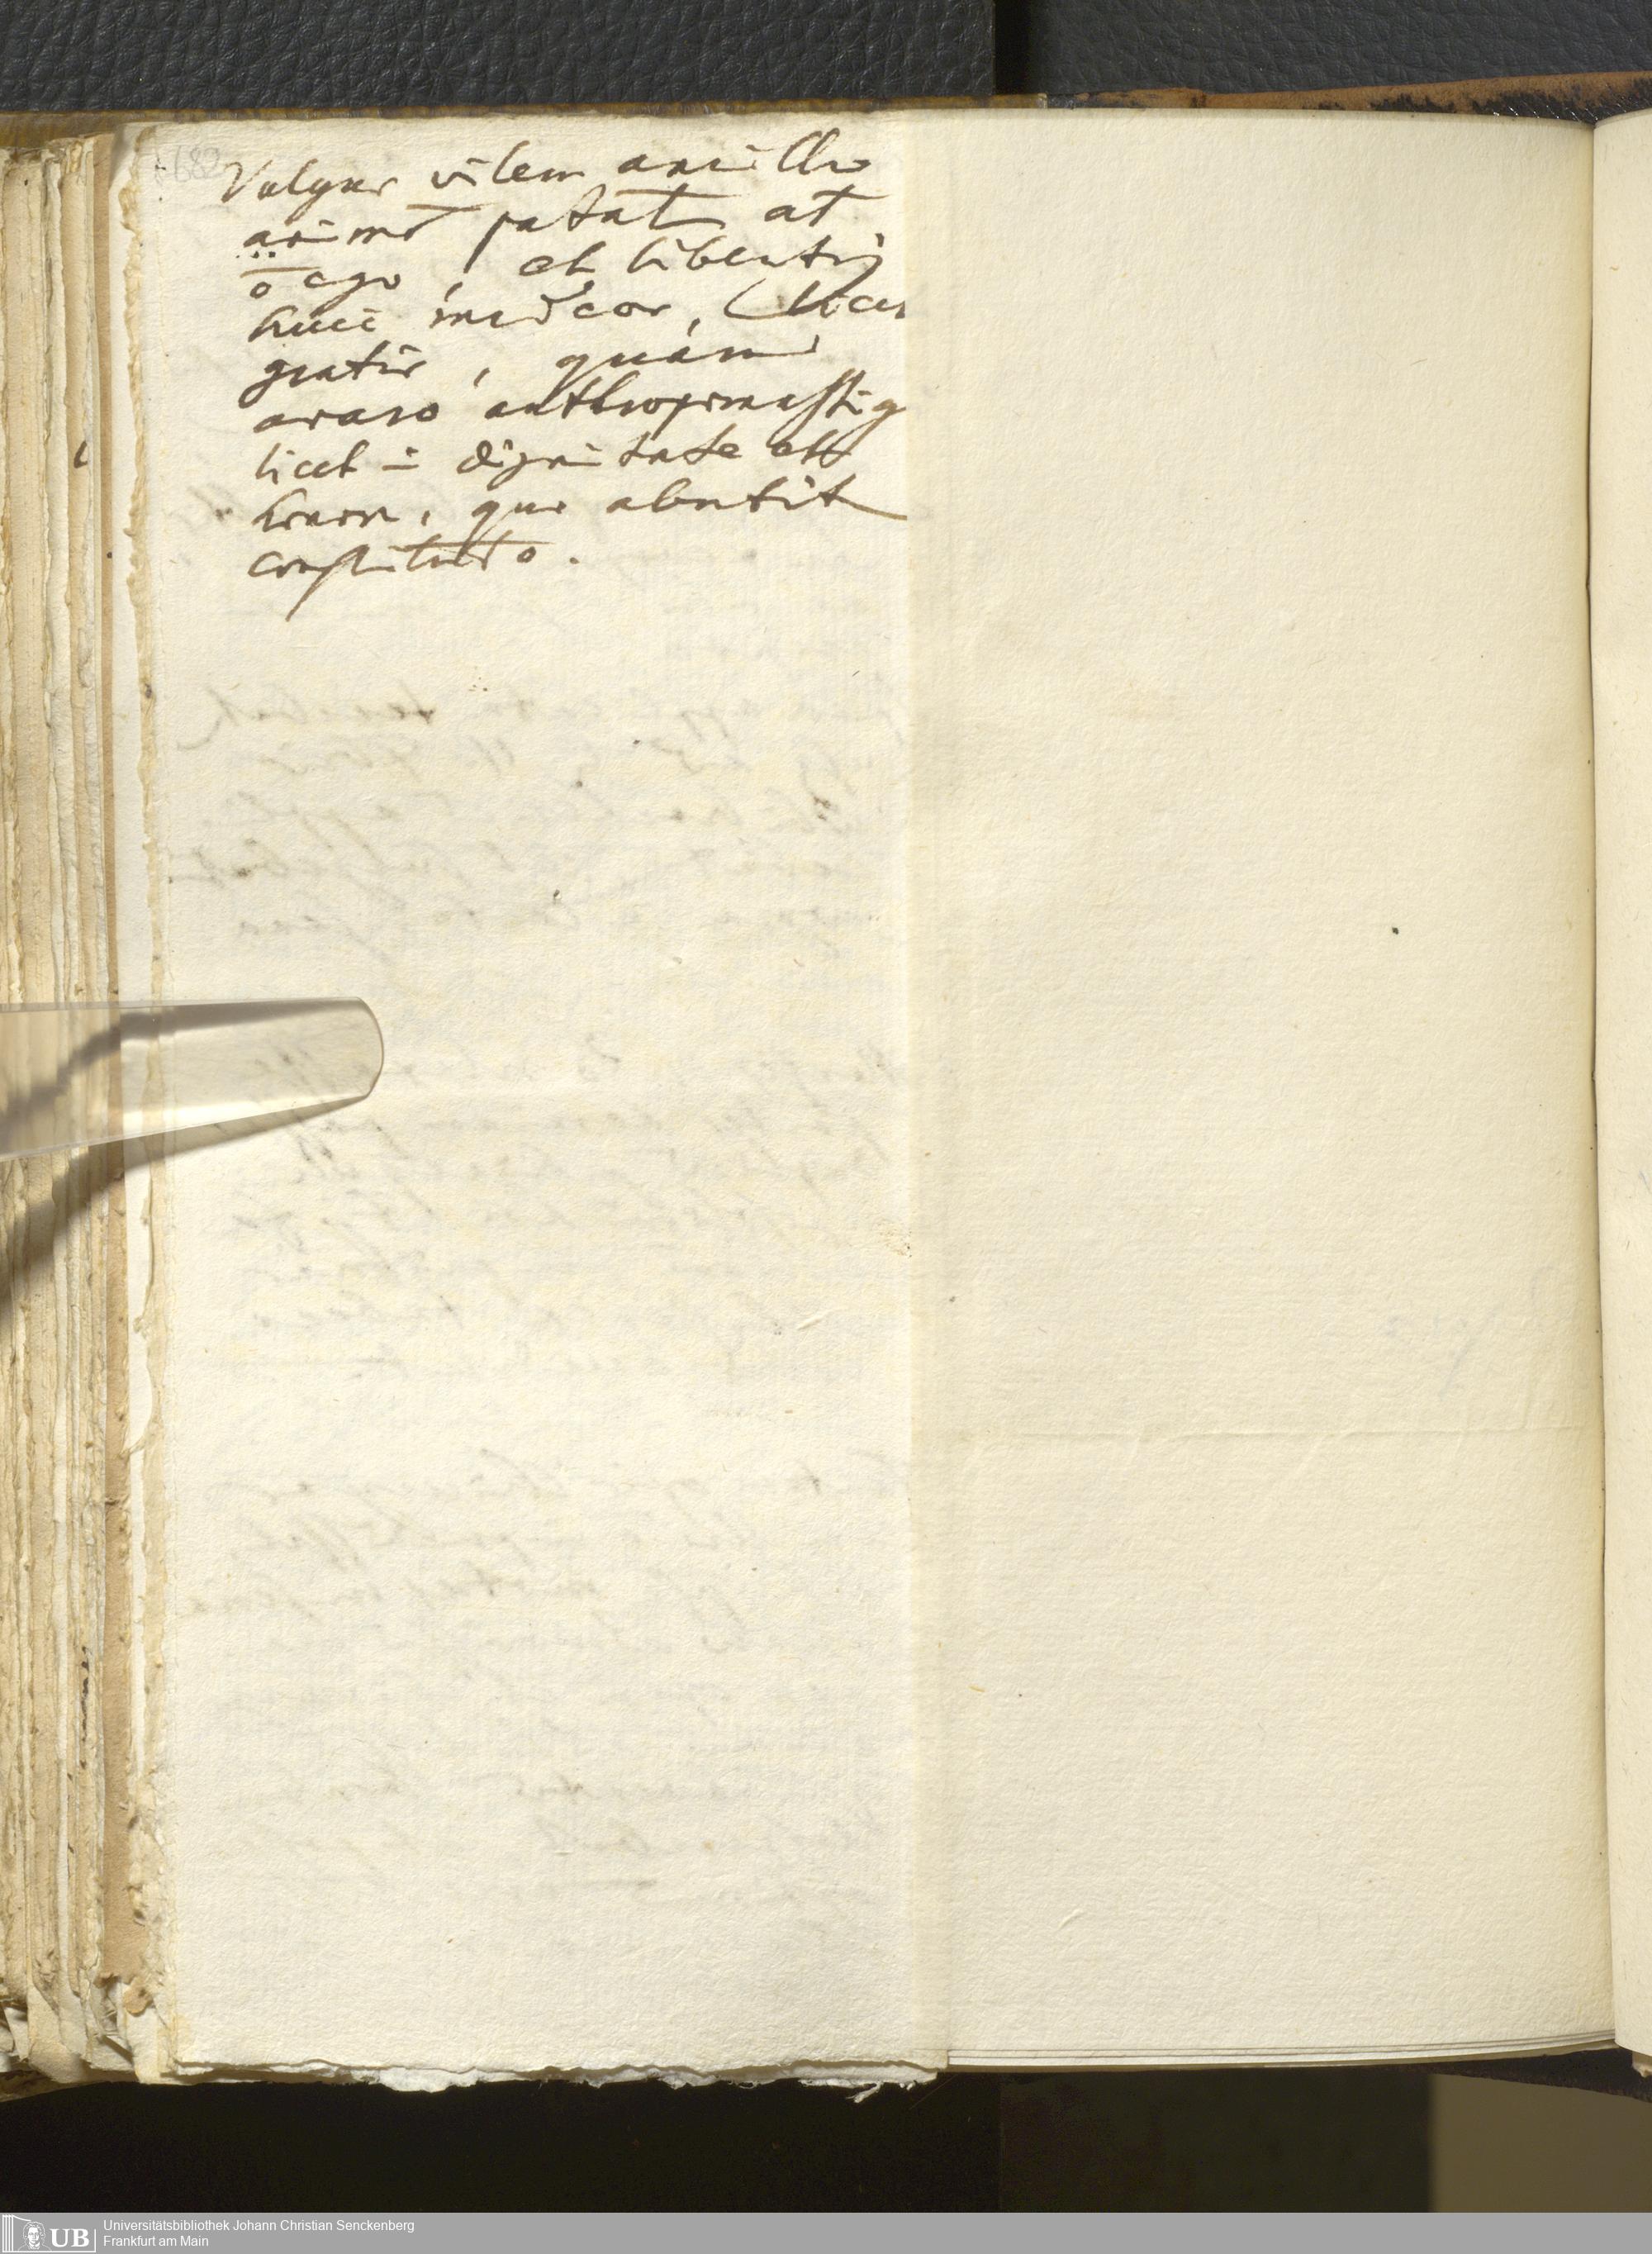 682
Vulgus vilem ancillā
animā putat at
ō ego, et libentiꝰ
huic medeor, licet
gratis, quàm
avaro anthropomastig
licet ī dignitate et
honor, quo abutit
constituto.
Universitätsbibliothek Johann Christian Senckenberg
Frankfurt am Main
UB